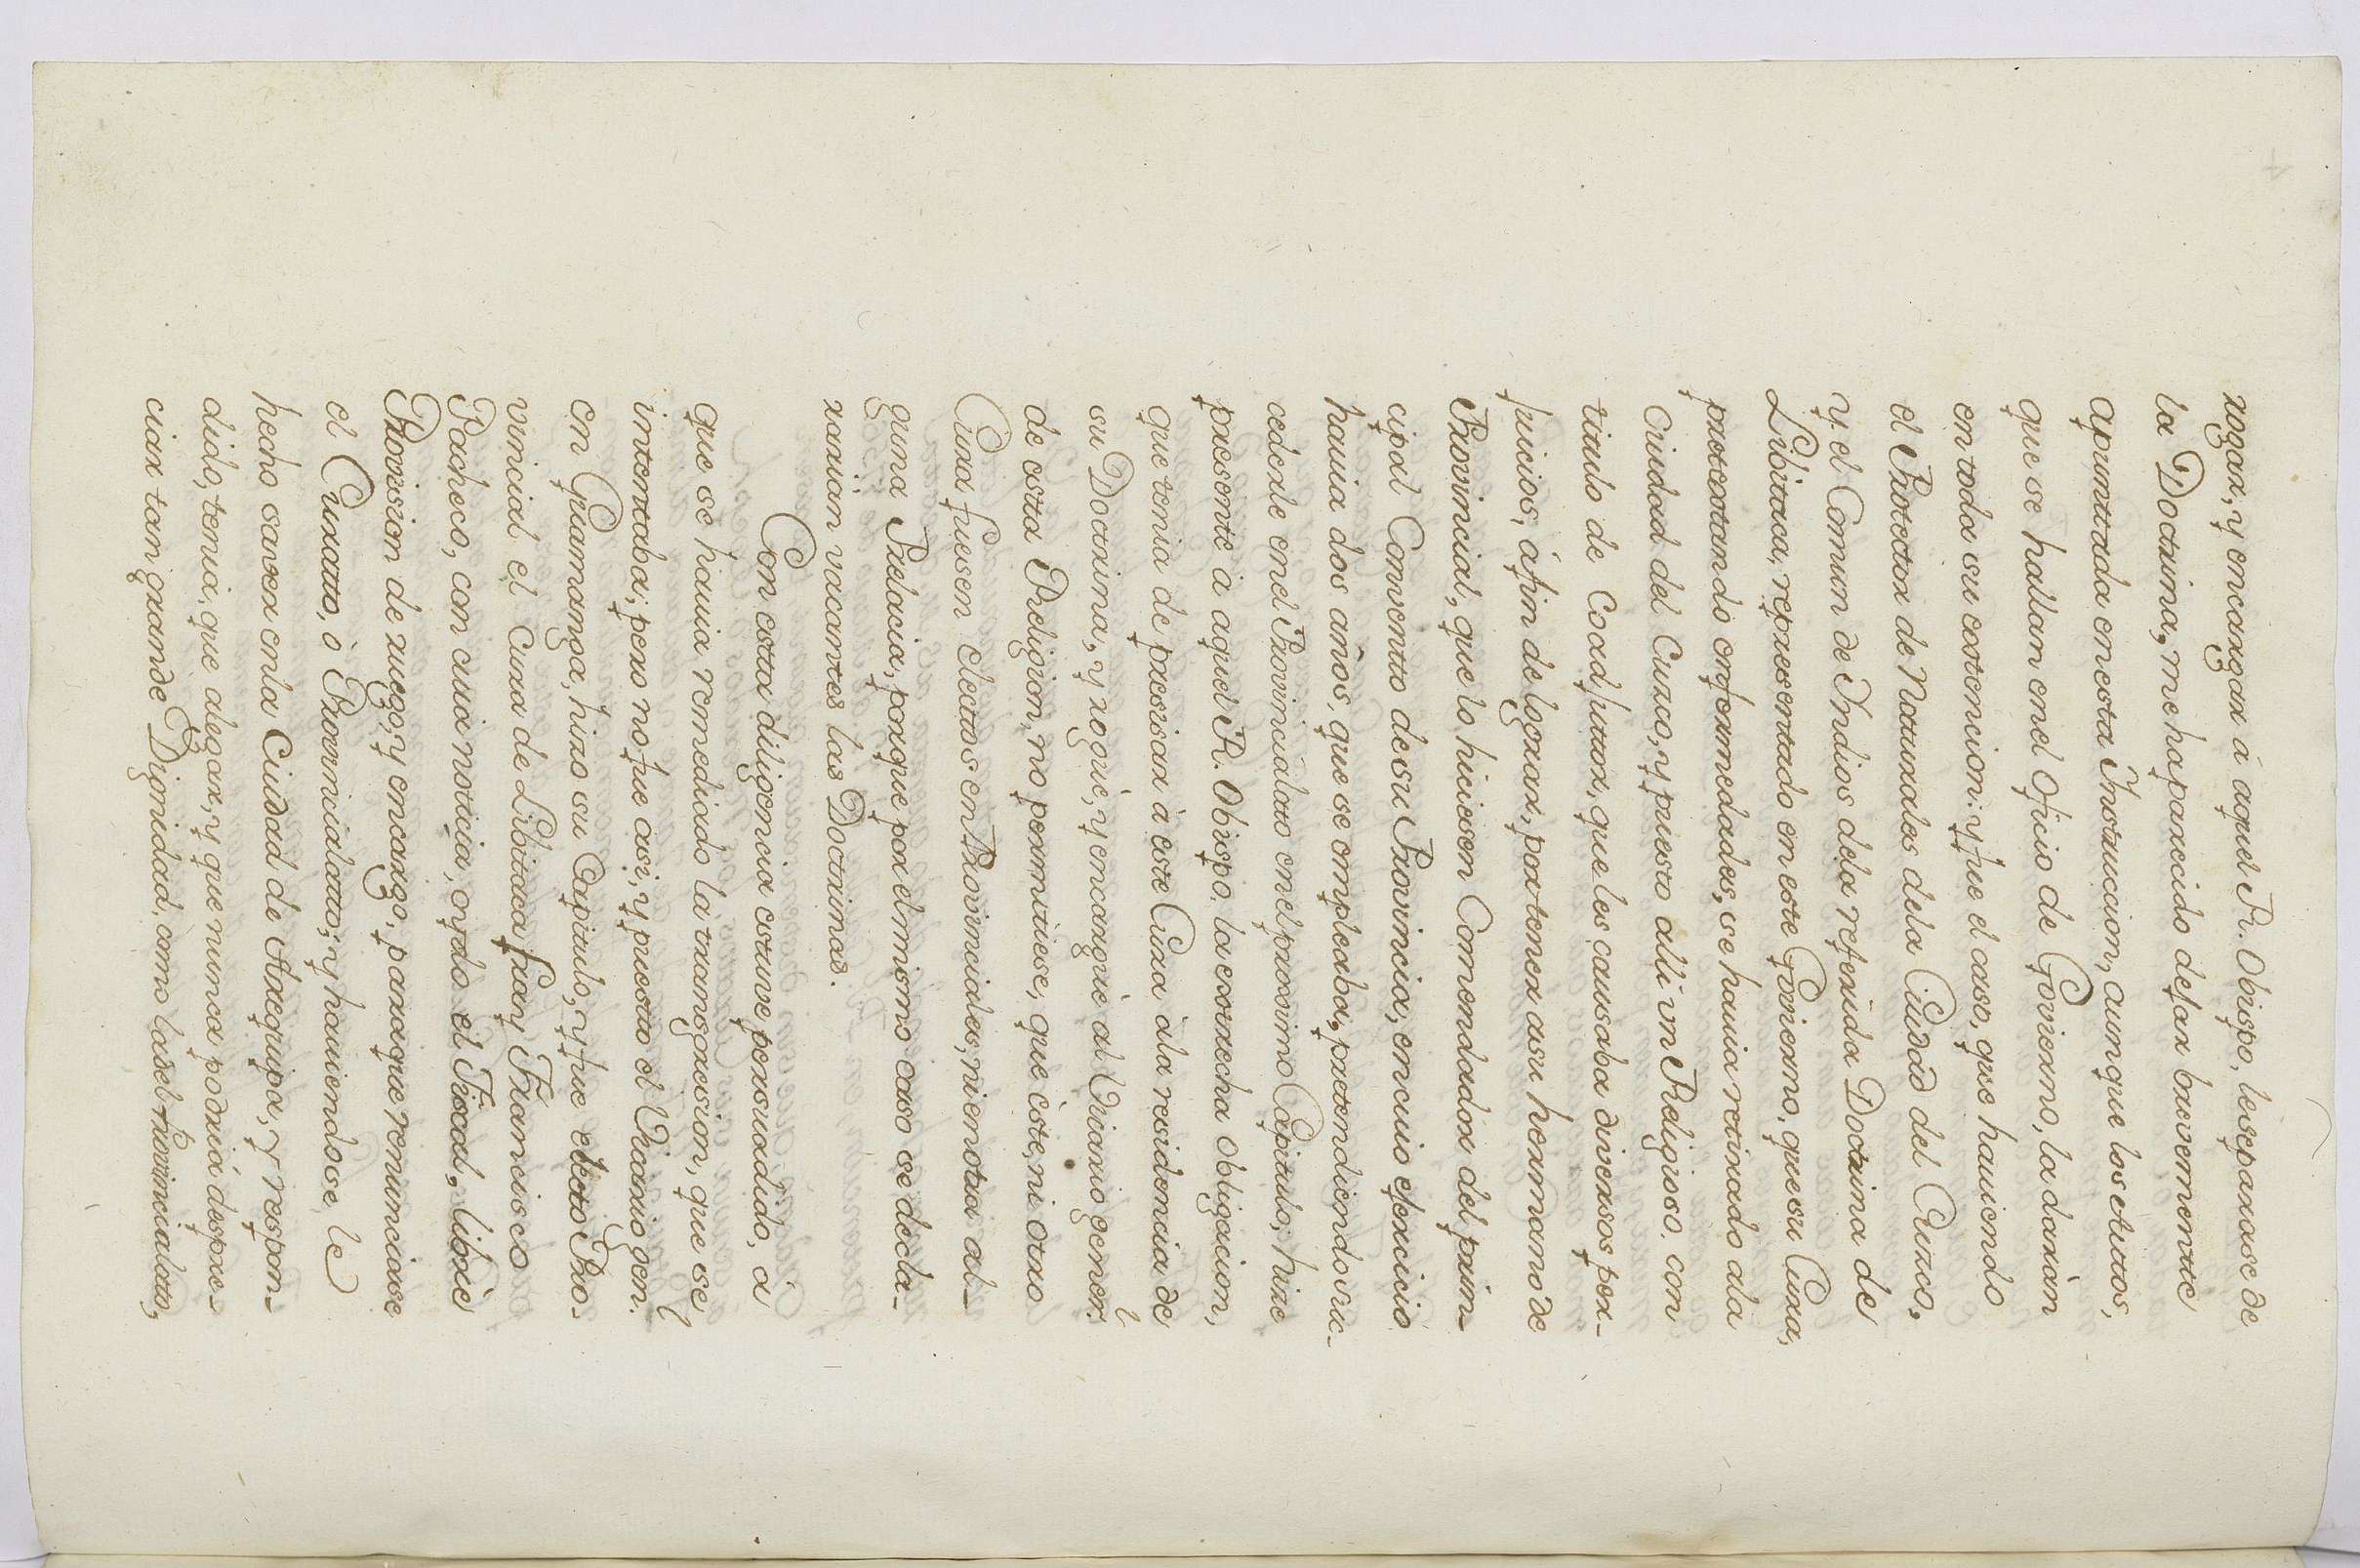 rogar, y encargar á aquel R. Obispo, le separase de
la Doctrina, me ha parecido dejar brevemente
apunttada en esta Ynstruccion, aunque los Auttos,
que se hallan en el Oficio de Govierno, la darán
en toda su extencion: y fue el caso, que haviendo
el Protector de Natturales de la Ciudad del Cuzco,
y el Comun de Yndios de la referida Doctrina de
Libitaca, representado en este Govierno, que su Cura,
pretextando enfermedades, se havia retirado a la
Ciudad del Cuzco, y puesto alli un Religioso con
titulo de Coadjuttor, que les causaba diversos per-
juicios, á fin de lograr, por tener a su hermano de
Provincial, que lo hiciesen Comendador del prin-
cipal Conventto de su Provincia, en cuio efercicio
havia dos años, que se empleaba, pretendiendo suc-
cederle en el Provincialato en el proximo Capitulo; hice
presente á aquel R. Obispo la estrecha obligacion,
que tenia de precisar á este Cura á la residencia de
su Doctrina, y rogué, y encargué al Vicario gener.l
de esta Religion, no permitiese, que éste, ni otro
Cura fuesen electtos en Provinciales, ni en otra al-
guna Prelacia, porque por el mismo caso se decla-
rarian vacantes las Doctrinas.
Con esta diligencia estuve persuadido, á
que se havia remediado la transgresion, que se
intentaba; pero no fue asi, y puesto el Vicario gen.l
en Guamanga, hizo su Capitulo, y fue electo Pro-
vincial el Cura de Libitaca fray Francisco
Pacheco, con cuia noticia, oydo el Fiscal, libré
Provision de ruego, y encargo, para que renunciase
el Curatto, ò Provincialatto; y haviendose le
hecho saver en la Ciudad de Arequipa, y respon-
dido, tenia, que alegar, y que nunca podria despre-
ciar tan grande Dignidad, como la del Provincialatto,